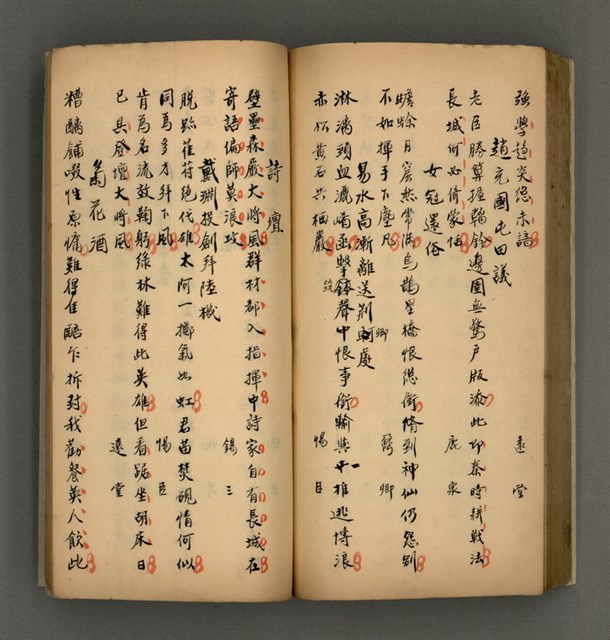 強學趨炎總未諳　遠堂
趙充國屯田議
老臣勝算握韜鈐邊圉無驚戶版添此即秦時耕戰法
長城何必倚蒙恬　鹿泉
女冠還俗
蟾蜍月窟熬常流烏鵲星橋恨總銜修到神仙仍怨別
不如揮手下塵凡　鶴卿
易水高漸離送別荊卿處
淋漓頭血濺痛丞擊筑聲中恨事銜輸與一椎逃博浪
赤松黃石共栖巖　惕臣
詩壇
壁壘森嚴大將風群材都入指揮中詩家自有長城在
寄語偏師莫浪攻　錫三
戴淵投劍拜陸機
脫跡萑苻絕代雄太阿一擲氣如虹君苗焚硯情何似
同為多才拜下風　惕臣
肯為名流效鞠躬綠林難得此英雄但看踞坐胡床日
已具登壇大將風　遠堂
菊花酒
糟醨餔啜性原慵難得佳醅乍拆封我勸餐英人飲此